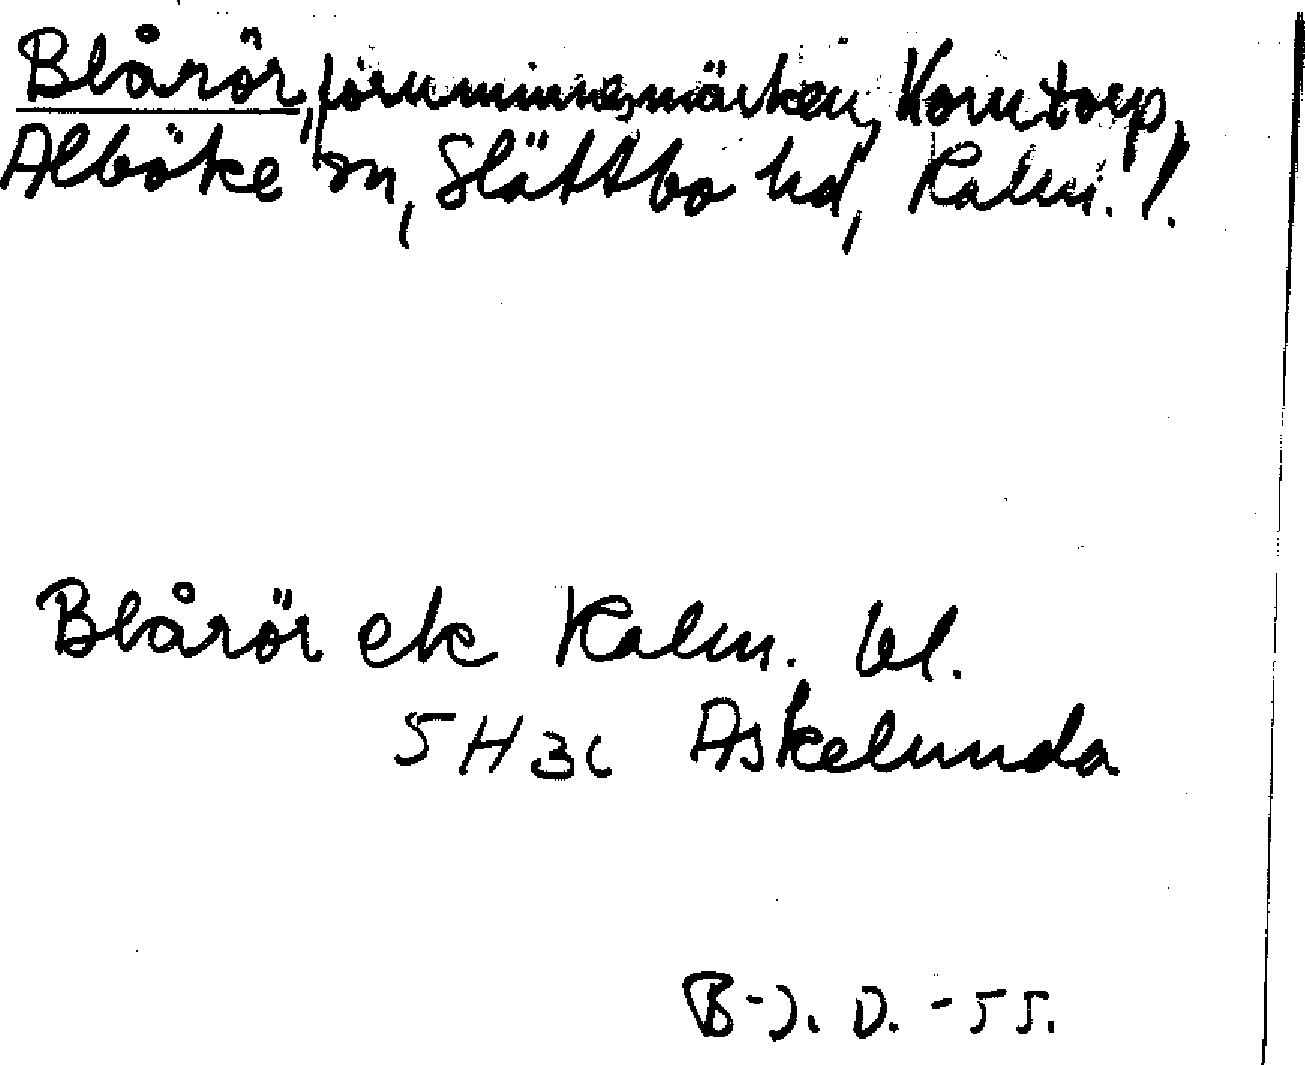 Blårör, fornminnesmärken, Korntorp,
Alböke sn, Slättbo hd, Kalm. l.
Blårör ek Kalm. bl.
5H3c Askelunda
B-J. D. -55.